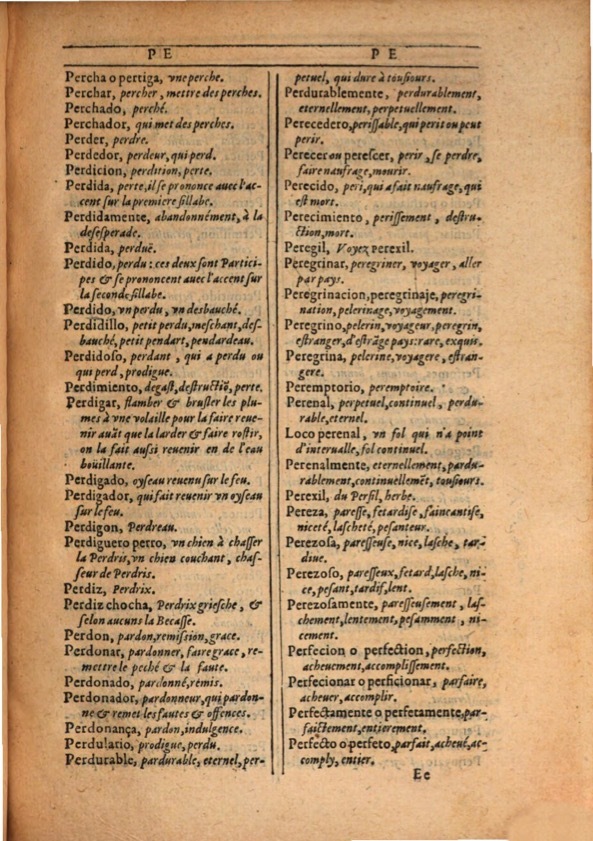 PE
PE
Percha o pertiga, vne perche.
Perchar, percher, mettre des perches.
Perchado, perché.
Perchador, qui met des perches.
Perder, perdre.
Perdedor, perdeur, qui perd.
Perdicion, perdition, perte.
Perdida, perte, il se prononce auec l'ac-
cent sur la premiere sillabe.
Perdidamente, abandonnément, à la
desesperade.
Perdida, perduë.
Perdido, perdu : ces deux sont Partici-
pes & se prononcent auec l'accent sur
la seconde sillabe.
Perdido, vn perdu, vn desbauché.
Perdidillo, petit perdu, meschant, des-
bauché, petit pendart, pendardeau.
Perdidoso, perdant, qui a perdu ou
qui perd, prodigue.
Perdimiento, degast, destructiõ, perte.
Perdigar, flamber & brusler les plu-
mes à vne volaille pour la faire reue-
nir auãt que la larder & faire rostir,
on la fait aussi reuenir en de l'eau
boüillante.
Perdigado, oyseau reuenu sur le feu.
Perdigador, qui fait reuenir vn oyseau
sur le feu.
Perdigon, Perdreau.
Perdiguero perro, vn chien à chasser
la Perdris, vn chien couchant, chas-
seur de Perdris.
Perdiz, Perdrix.
Perdiz chocha, Perdrix griesche, &
selon aucuns la Becasse.
Perdon, pardon, remission, grace.
Perdonar, pardonner, faire grace, re-
mettre le peché & la faute.
Perdonado, pardonné, remis.
Perdonador, pardonneur, qui pardon-
ne & remet les fautes & offences.
Perdonança, pardon, indulgence.
Perdulario, prodigue, perdu.
Perdurable, pardurable, eternel, per-
petuel, qui dure à tousiours.
Perdurablemente, perdurablement,
eternellement, perpetuellement.
Perecedero, perissable, qui perit ou peut
perir.
Perecer ou perescer, perir, se perdre,
faire naufrage, mourir.
Perecido, peri, qui a fait naufrage, qui
est mort.
Perecimiento, perissement, destru-
ction, mort.
Peregil, Voyez Perexil.
Peregrinar, peregriner, voyager, aller
par pays.
Peregrinacion, peregrinaje, peregri-
nation, pelerinage, voyagement.
Peregrino, pelerin, voyageur, peregrin,
estranger, d'estrãge pays : rare, exquis.
Peregrina, pelerine, voyagere, estran-
gere.
Peremptorio, peremptoire.
Perenal, perpetuel, continuel, perdu-
rable, eternel.
Loco perenal, vn fol qui n'a point
d'interualle, fol continuel.
Perenalmente, eternellement, pardu-
rablement, continuellemẽt, tousiours.
Perexil, du Persil, herbe.
Pereza, paresse, fetardise, faineantise,
niceté, lascheté, pesanteur.
Perezosa, paresseuse, nice, lasche, tar-
diue.
Perezoso, paresseux, fetard, lasche, ni-
ce, pesant, tardif, lent.
Perezosamente, paresseusement, las-
chement, lentement, pesamment, ni-
cement.
Perfecion o perfection, perfection,
acheuement, accomplissement.
Perfecionar o perficionar, parfaire,
acheuer, accomplir.
Perfectamente o perfetamente, par-
faictement, entierement.
Perfecto o perfeto, parfait, acheué, ac-
comply, entier.
Ee